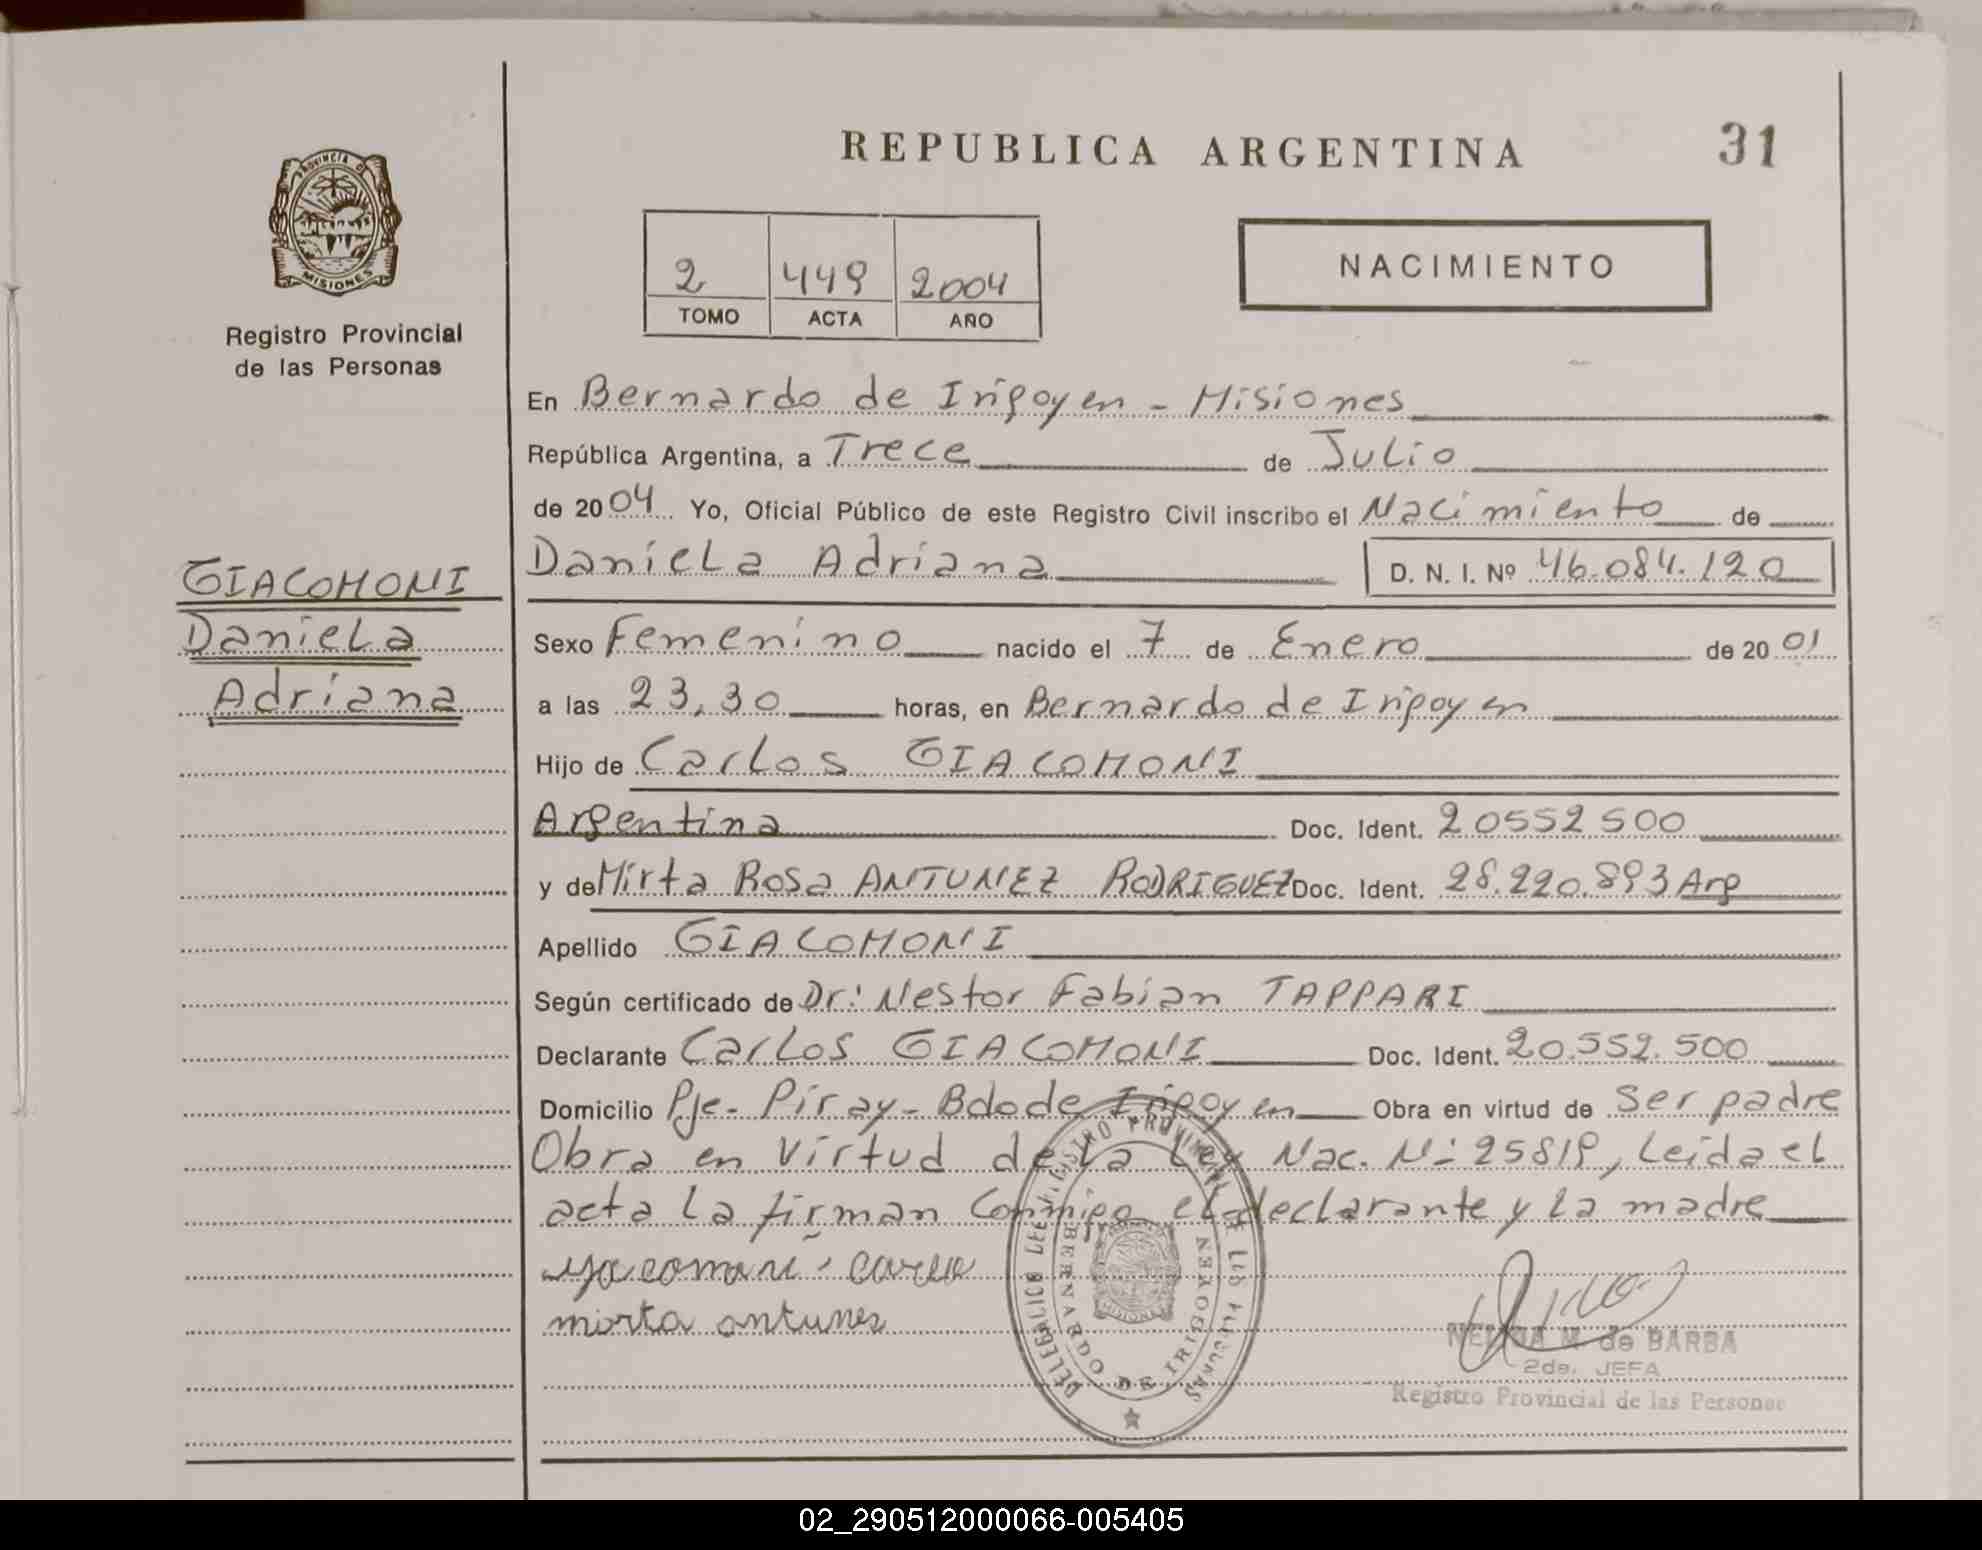 REPUBLICA ARGENTINA
31
PROVINCIA DE MISIONES
Registro Provincial
de las Personas
2 449 2004
TOMO ACTA AÑO
NACIMIENTO
En Bernardo de Irigoyen - Misiones
República Argentina, a Trece de Julio
de 2004 Yo, Oficial Público de este Registro Civil inscribo el Nacimiento de
Daniela Adriana D. N. I. Nº 46.084.120
GIACOMONI
Daniela
Adriana
Sexo Femenino nacido el 7 de Enero de 2001
a las 23,30 horas, en Bernardo de Irigoyen
Hijo de Carlos GIACOMONI
Argentina Doc. Ident. 20552500
y de Mirta Rosa ANTUNEZ RODRIGUEZ Doc. Ident. 28.220.893 Arg
Apellido GIACOMONI
Según certificado de Dr: Nestor Fabian TAPPARI
Declarante Carlos GIACOMONI Doc. Ident. 20.552.500
Domicilio Pje- Piray- Bdo de Irigoyen Obra en virtud de Ser padre
Obra en Virtud de la Ley Nac. Nº 25819, Leida el
acta la firman Conmigo el declarante y la madre
mirta antunez
DELEGACION DEL REGISTRO PROVINCIAL DE LAS PERSONAS
BERNARDO DE IRIGOYEN
MISIONES
M. de BARBA
2da. JEFA
Registro Provincial de las Personas
02_290512000066-005405